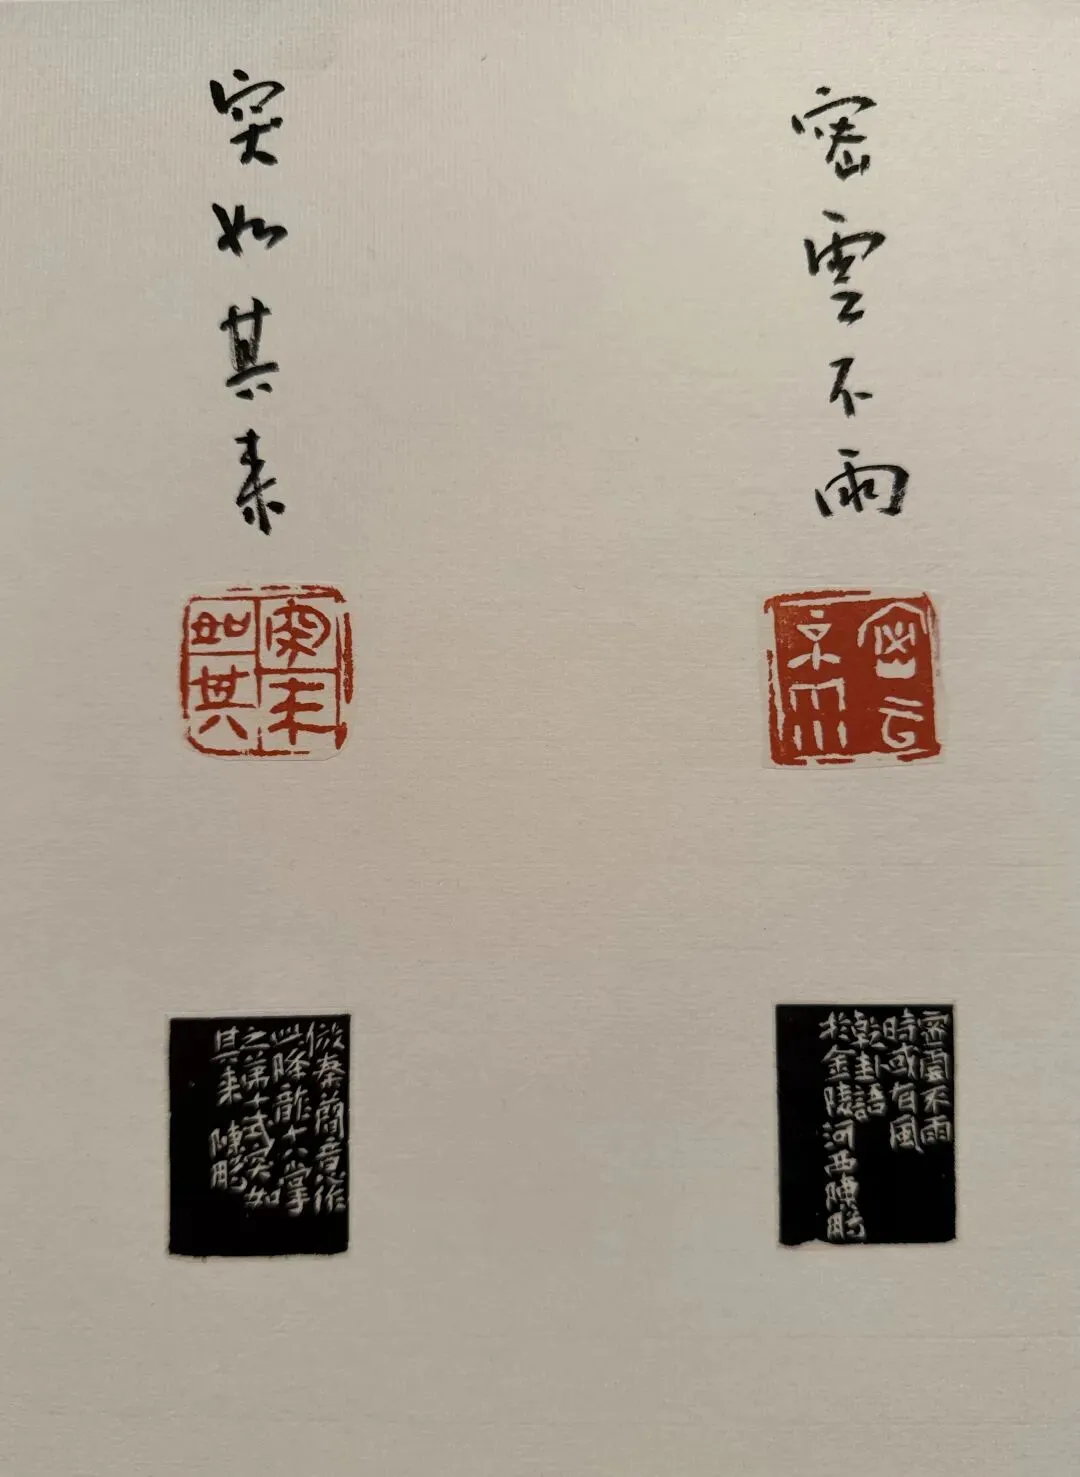 密雲不雨
密云
不雨
密雲不雨
時或有風
乾卦語
於金陵河西陳鵬
突如其來
突來
如其
倣秦簡意作
此降龍十八掌
之第十式突如
其來 陳鵬